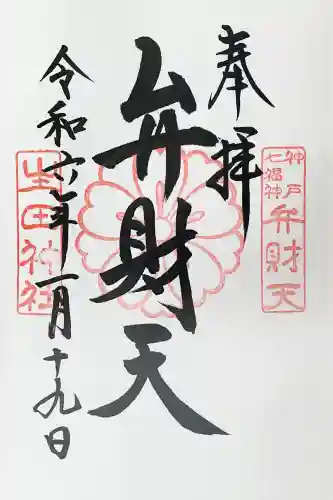 奉拝
神戸
七福神
弁財天
弁財天
生田神社
令和六年一月十九日